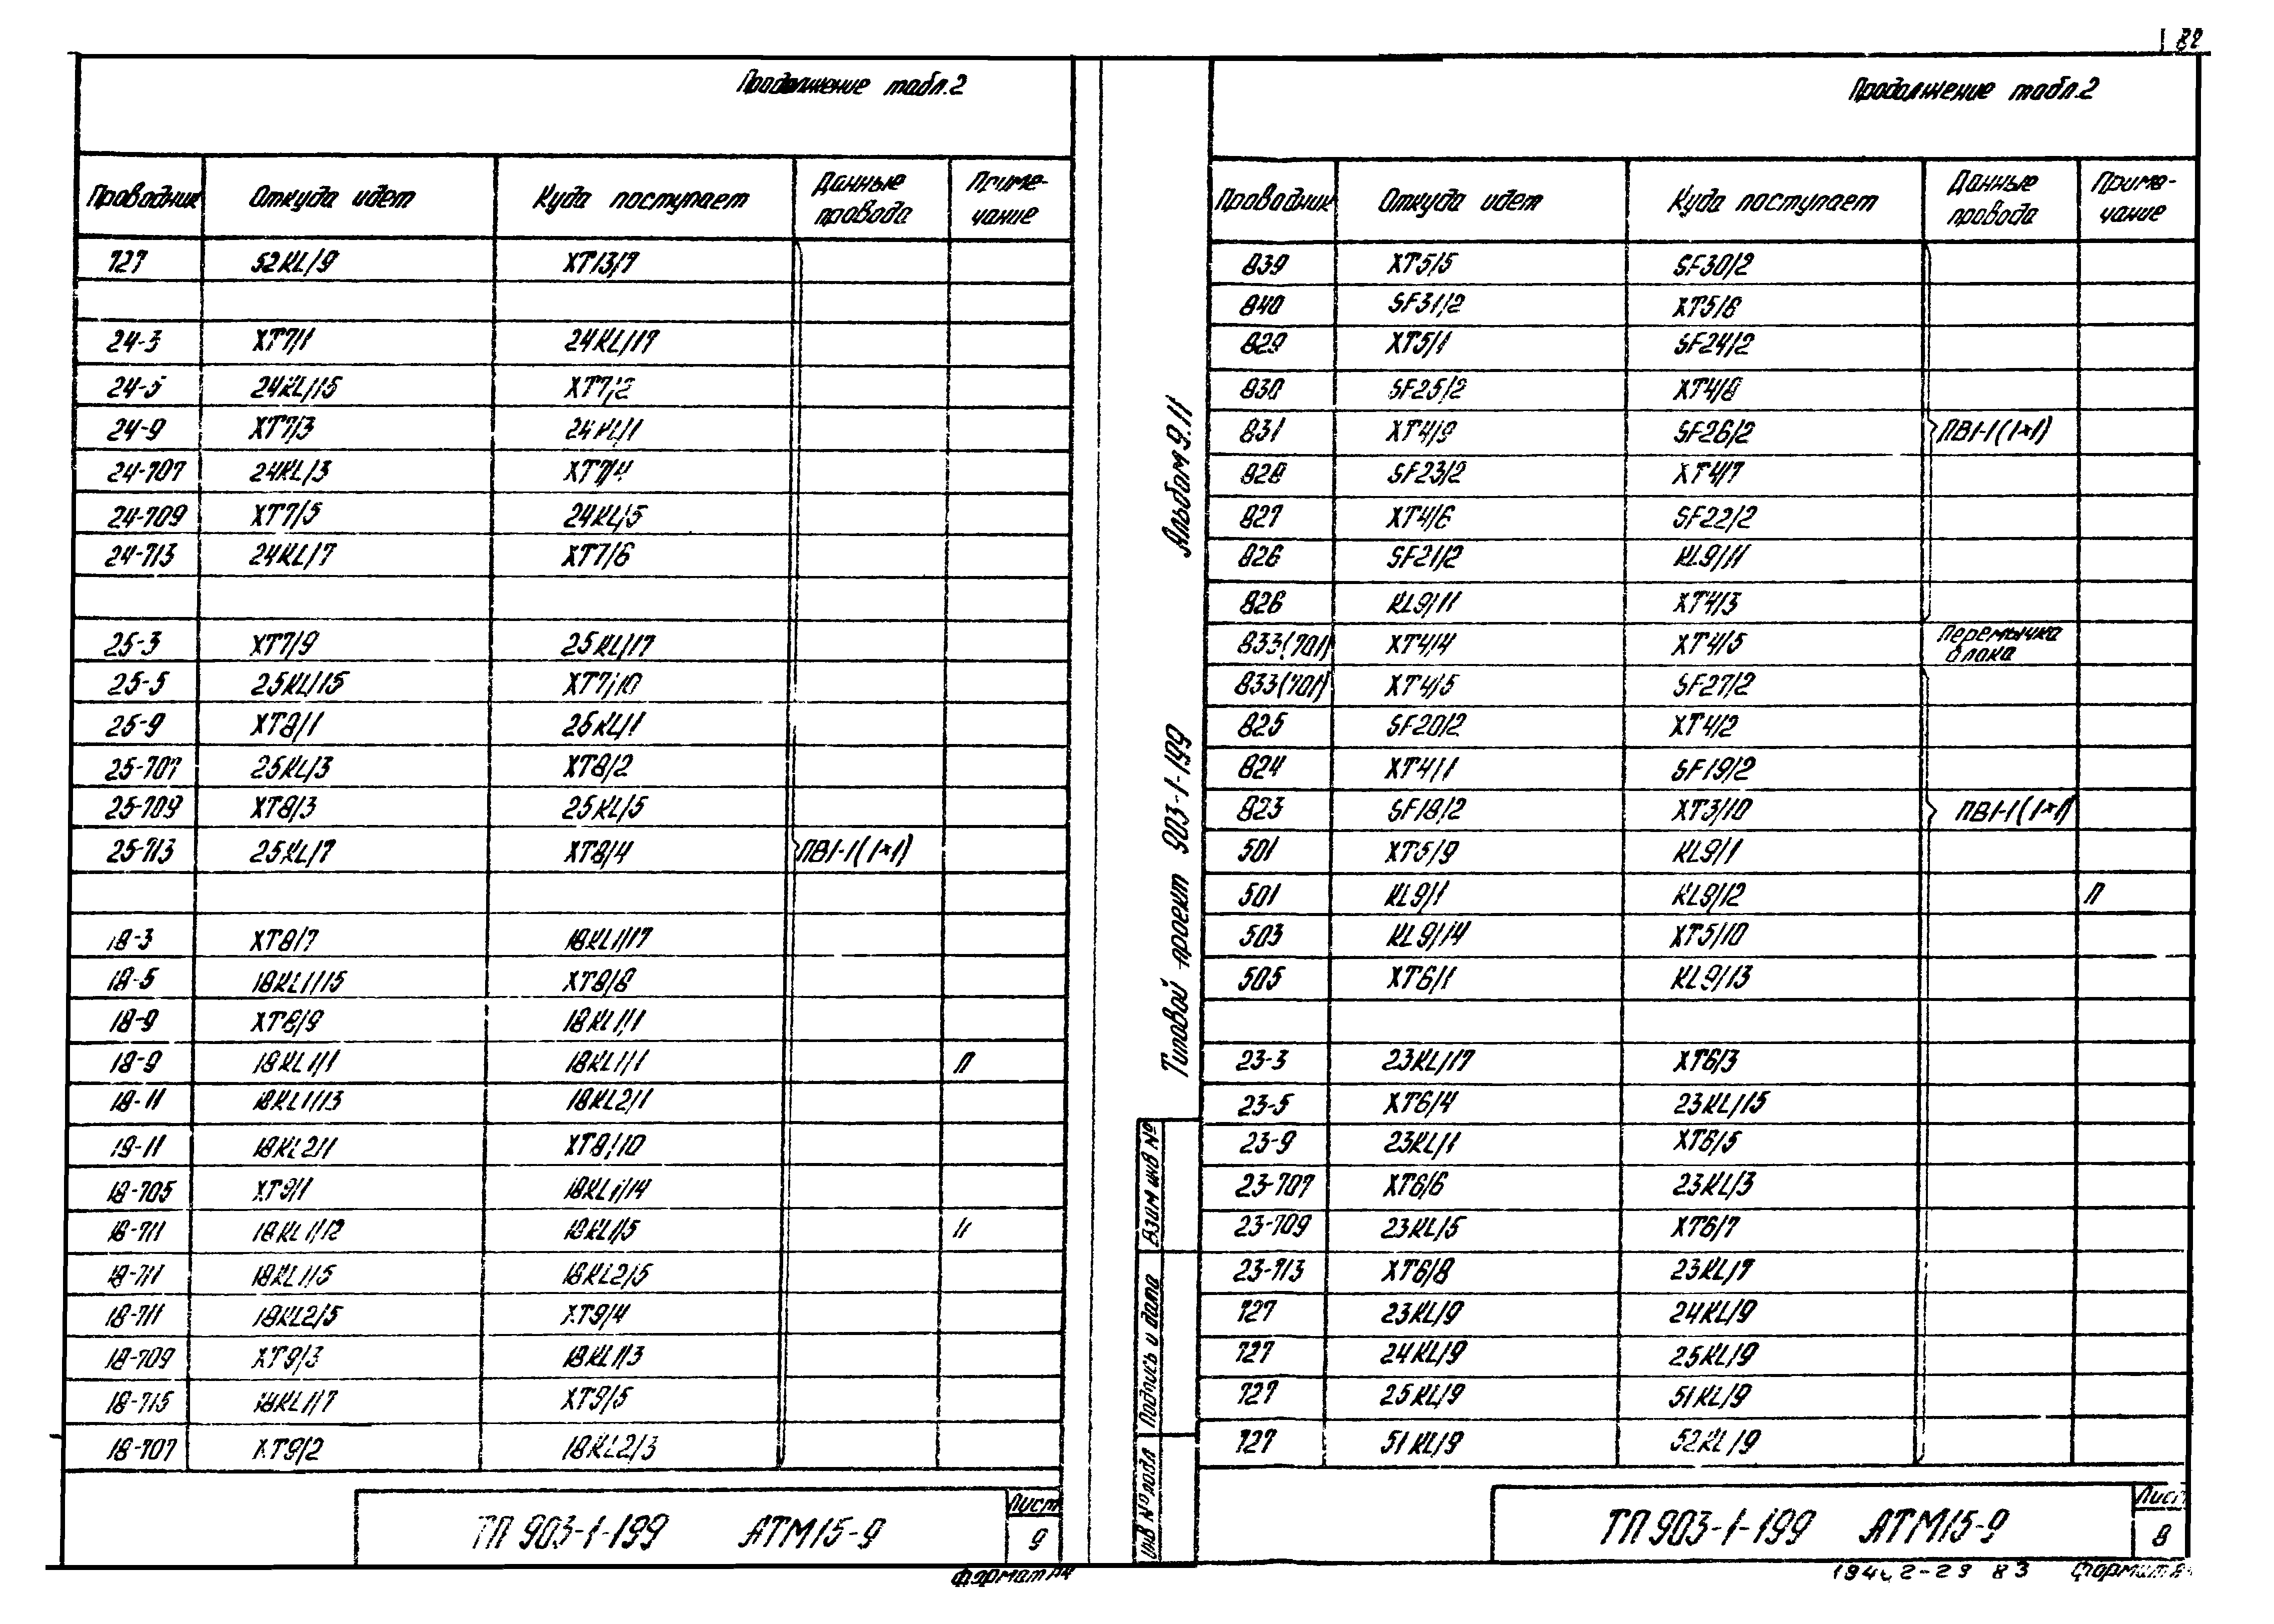 82
Продолжение табл.2
Проводник Откуда идет Куда поступает Данные провода Примечание
727 52KL/9 XT13/7
24-3 XT7/1 24KL/17
24-5 24KL/15 XT7/2
24-9 XT7/3 24KL/1
24-707 24KL/3 XT7/4
24-709 XT7/5 24KL/5
24-713 24KL/7 XT7/6
25-3 XT7/9 25KL/17
25-5 25KL/15 XT7/10
25-9 XT8/1 25KL/1
25-707 25KL/3 XT8/2
25-709 XT8/3 25KL/5
25-713 25KL/7 XT8/4 ПВ1-1(1×1)
18-3 XT8/7 18KL1/17
18-5 18KL1/15 XT8/8
18-9 XT8/9 18KL1/1
18-9 18KL1/1 18KL1/1 П
18-11 18KL1/13 18KL2/1
18-11 18KL2/1 XT8/10
18-705 XT9/1 18KL1/14
18-711 18KL1/12 18KL1/5 П
18-711 18KL1/5 18KL2/5
18-711 18KL2/5 XT9/4
18-709 XT9/3 18KL1/3
18-715 18KL1/7 XT9/5
18-707 XT9/2 18KL2/3
ТП 903-1-199 АТМ15-9
Лист
9
Формат А4
Альбом 9.11
Типовой проект 903-1-199
Взам инв №
Подпись и дата
Инв № подл
Продолжение табл.2
Проводник Откуда идет Куда поступает Данные провода Примечание
839 XT5/5 SF30/2
840 SF31/2 XT5/6
829 XT5/1 SF24/2
830 SF25/2 XT4/8
831 XT4/9 SF26/2 ПВ1-1(1×1)
828 SF23/2 XT4/7
827 XT4/6 SF22/2
826 SF21/2 KL9/11
826 KL9/11 XT4/3
833(701) XT4/4 XT4/5 Перемычка блока
833(701) XT4/5 SF27/2
825 SF20/2 XT4/2
824 XT4/1 SF19/2
823 SF18/2 XT3/10 ПВ1-1(1×1)
501 XT5/9 KL9/1
501 KL9/1 KL9/12 П
503 KL9/14 XT5/10
505 XT6/1 KL9/13
23-3 23KL/17 XT6/3
23-5 XT6/4 23KL/15
23-9 23KL/1 XT6/5
23-707 XT6/6 23KL/3
23-709 23KL/5 XT6/7
23-713 XT6/8 23KL/7
727 23KL/9 24KL/9
727 24KL/9 25KL/9
727 25KL/9 51KL/9
727 51KL/9 52KL/9
ТП 903-1-199 АТМ15-9
Лист
8
83 Формат